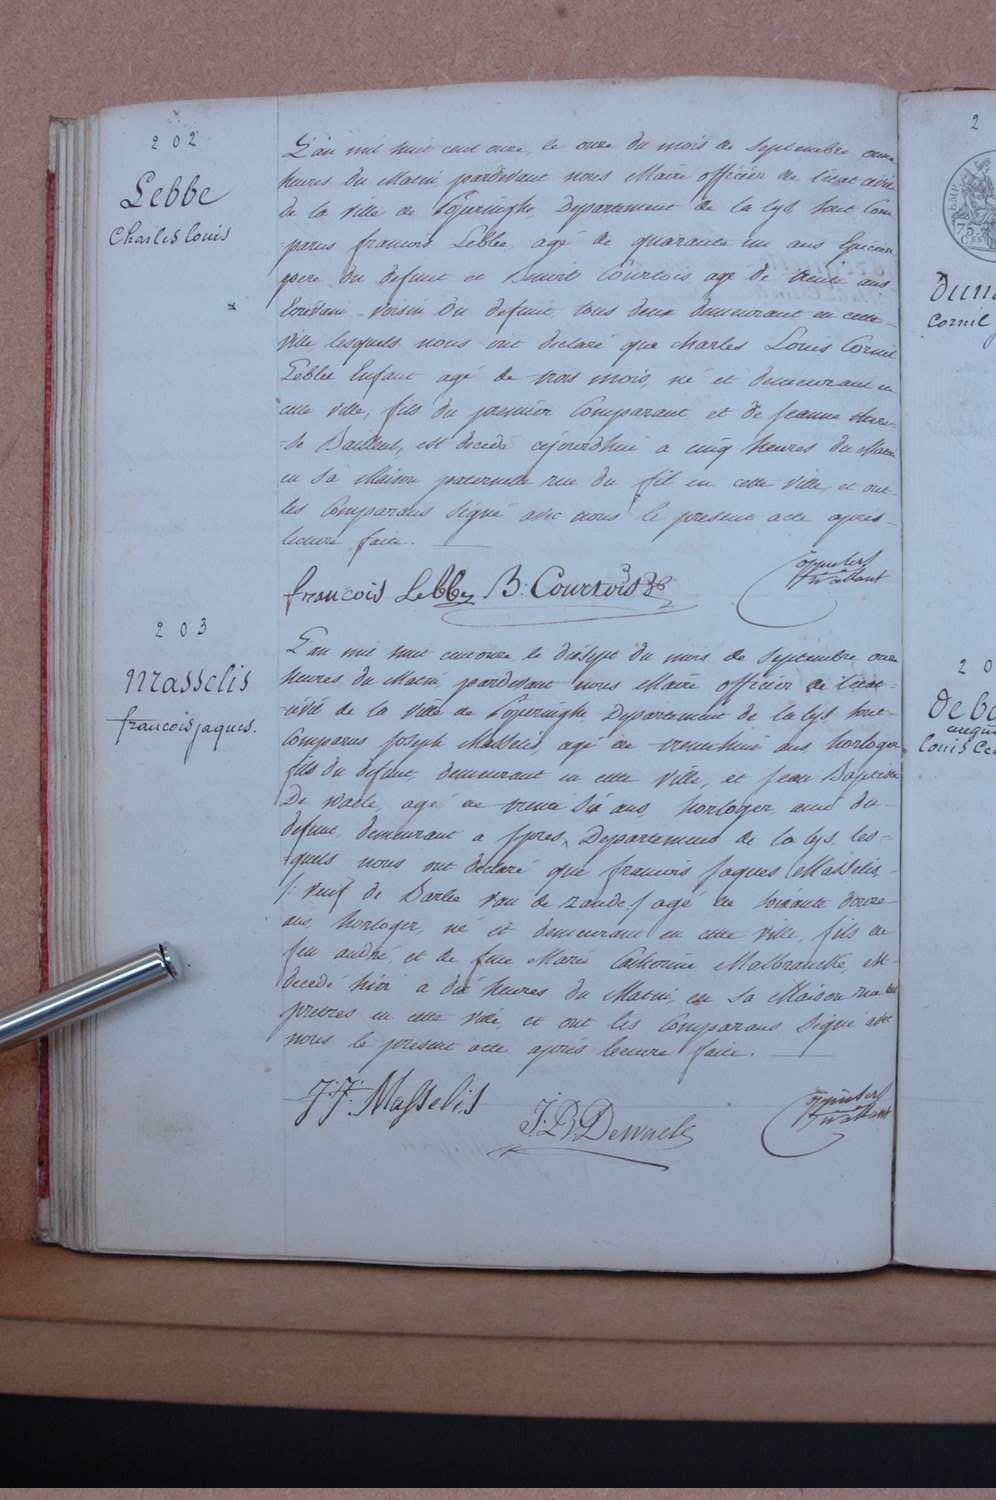 202
Lebbe
Charles Louis
L'an mil huit cent onze, le onze du mois de Septembre onze
heures du Matin pardevant nous Maire officier de l'etat civil
de la Ville de Poperinghe, Departement de la Lys, sont Com-
parus francois Lebbe agé de quarante un ans
pere du defunt et Benoit Courtois agé de trente ans
voisin du defunt, tous deux demeurant en cette
Ville lesquels nous ont declaré que Charles Louis Cornil
Lebbe Enfant agé de trois mois, né et demeurant en
cette Ville, fils du premier Comparant et de Jeanne
Bailleul, est decedé cejourdhui a cinq heures du Matin
en sa Maison paternelle rue du fil en cette Ville, et ont
les Comparans Signé avec nous le present acte apres
lecture faite.
francois Lebbe B: Courtois
203
Masselis
francois jaques.
L'an mil huit cent onze le dixsept du mois de Septembre onze
heures du Matin, pardevant nous Maire officier de l'etat
civil de la Ville de Poperinghe Departement de la Lys sont
Comparus Joseph Masselis, agé de trentehuit ans horloger
fils du defunt, demeurant en cette Ville, et Jean Baptiste
De Waele, agé de trente Six ans, horloger, ami du
defunt, demeurant a Ypres, Departement de la Lys, les-
quels nous ont declaré que francois Jaques Masselis,
/: Veuf de Barbe Van de Zande / agé de soixante douze
ans, horloger, né et demeurant en cette Ville, fils de
feu andré, et de feue Marie Catherine Malbrancke, est
decedé hier a dix heures du Matin, en sa Maison rue des
pretres en cette Ville, et ont les Comparans Signé avec
nous le present acte aprés lecture faite.
J: J: Masselis
J: B: DeWaele
2
75
Cornil
20
Louis